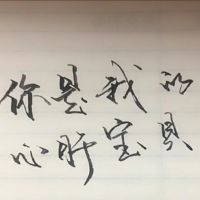 你是我的
心肝宝贝